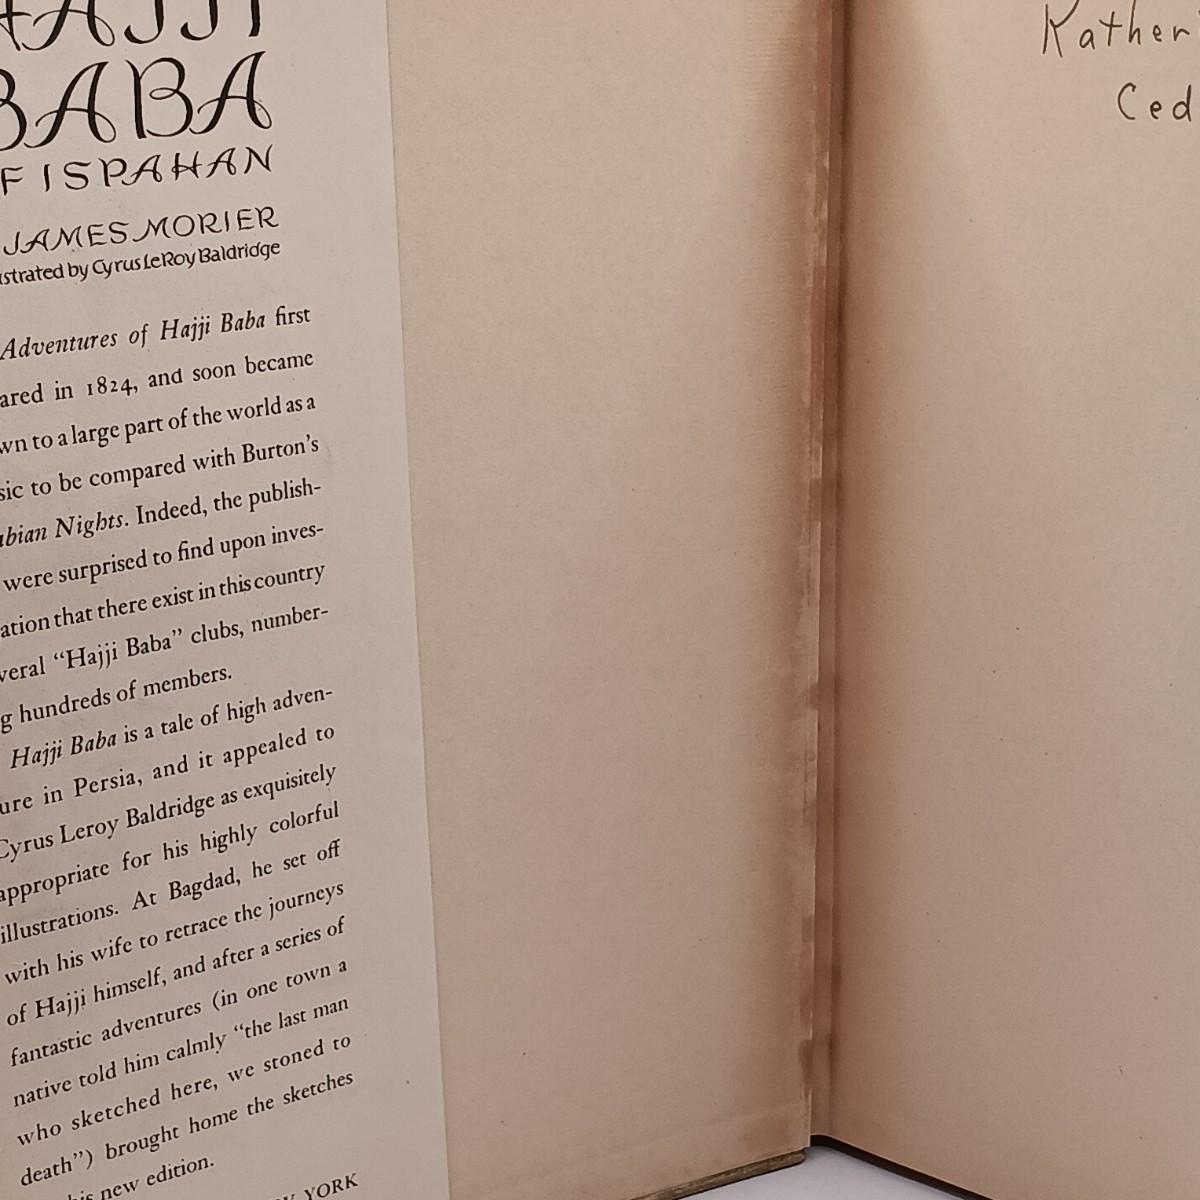 HAJJI
BABA
F ISPAHAN
JAMES MORIER
strated by Cyrus LeRoy Baldridge
Adventures of Hajji Baba first
ared in 1824, and soon became
wn to a large part of the world as a
sic to be compared with Burton's
abian Nights. Indeed, the publish-
were surprised to find upon inves-
ation that there exist in this country
veral "Hajji Baba" clubs, number-
g hundreds of members.
Hajji Baba is a tale of high adven-
ure in Persia, and it appealed to
Cyrus Leroy Baldridge as exquisitely
appropriate for his highly colorful
illustrations. At Bagdad, he set off
with his wife to retrace the journeys
of Hajji himself, and after a series of
fantastic adventures (in one town a
native told him calmly "the last man
who sketched here, we stoned to
death") brought home the sketches
his new edition.
YORK
Kather
Ced